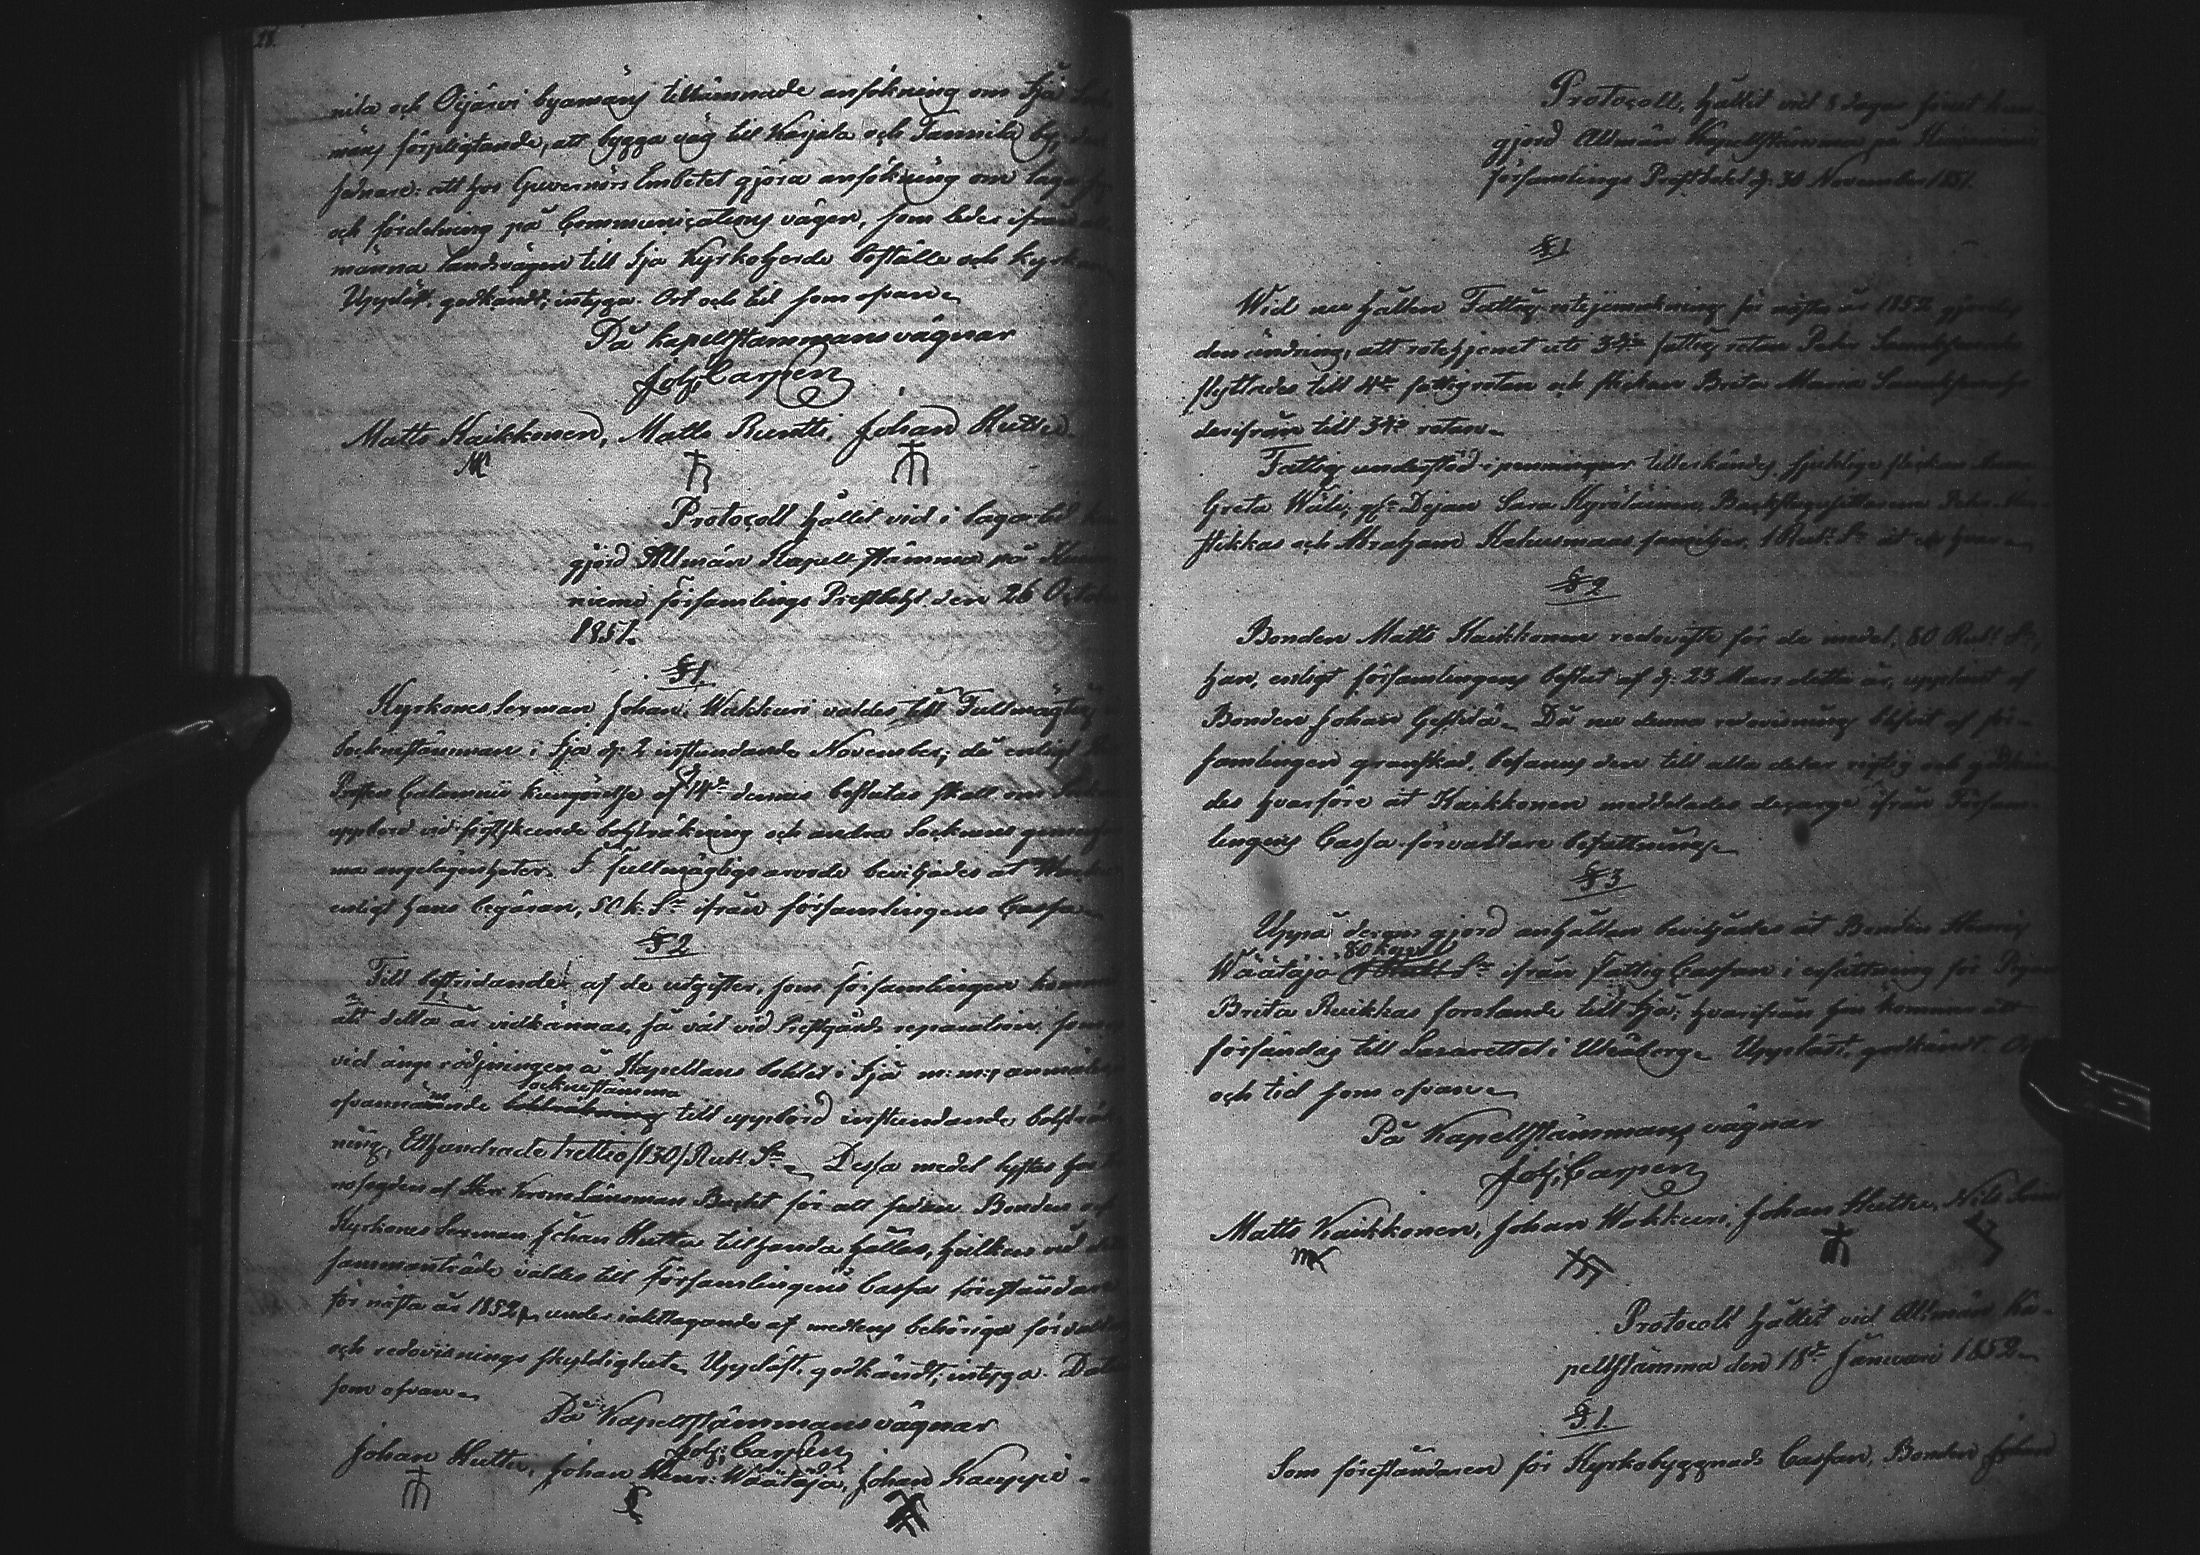 28.
nila och Oijärvi byamäns tillämnade ansökning om Ijå
mäns förpligtande, att bygga väg till Karjala och Tannila
sednare: att hos Guvernörs Embetet göra ansökning om laga
och fördelning på Communications vägen, som leder ifrån
männa landsvägen till Ijo Kyrkoherde boställe och kyrka
Uppläst, godkändt; intyga. Ort och tid som ofvan
På Kapellstämmans vägnar
Joh: Carpen
Matts Kaikkonen, Matts Ruotti, Johan Huttu
Protocoll hållet vid i laga tid
gjord Allmän Kapell stämma på
niemi församlings Prestbohl den 26 October
1851.
§ 1.
Kyrkones Sexman Johan Wakkuri valdes till Fullmägtig
Sockenstämman i Ijo d: 2 instundande November; då enligt
Calamnii kungörelse af d 14de dennes beslutas skall om
uppbörd vid förestående bohlräkning och andra Sockens gemensam
ma angelägenheter. I fullmägtigs arvode beviljades åt
enligt hans begäran, 50 k: Sr ifrån församlingens Cassa
§ 2
Till bestridande af de utgifter, som församlingen kommer
att detta år vidkännas, så väl vid Prestgårds reparation, som
vid ängs rödjningen å Kapellans bohlet i Ijo m: m: anmäles
ofvannämnde sockenstämma till uppbörd instundande bohlräk
ning, Etthundrade trettio /130/ Rub: Sr. Dessa medel lyftas
af Herr Krono Länsman Becht för att sedan Bonden och
Kyrkones Sexman Johan Huttu tillhanda hållas, hvilken vid
sammanträde valdes till Församlingens Cassa föreståndare
för nästa år 1852, under iakttagande af medlens behöriga förvaltning
och redovisnings skyldighet. Uppläst, godkändt; intyga. Datum
som ofvan
På Kapellstämmans vägnar
Joh: Carpen
Johan Huttu, Johan Henr: Wäätäjä, Johan Kauppi
Protocoll, hållit vid 8 dagar förut kun
gjord Allmän Kapellstämma på Kiiminki
församlings Prestbohl d: 30 November 1851.
§ 1
Wid nu hållen Fattig rotejemnkning för nästa år 1852 gjordes
den ändring, att rotehjonet uti 3dje fattig roten Petter
flyttades till 4de fattigroten och flickan Brita Maria
derifrån till 3dje roten
Fattig understöd i penningar tillerkändes sjuklige flickan Anna
Greta Wäli, Pigan Sara Kyröläinen, Backstugusittaren Petter
och Abraham familjer, 1 Rub: Sr åt hvar
§ 2
Bonden Matts Kaikkonen redoviste för de medel, 80 Rub: Sr,
han, enligt församlingens beslut af d: 23 Mars detta år, uppburit af
Bonden Johan Då nu denna redovisning blifvit af för-
samlingen granskad, befanns den till alla delar rigtig och godkän
des hvarföre åt Kaikkonen meddelades decharge ifrån Försam
lingens Cassa förvaltare befattning
§ 3
Uppå derom gjord anhållan beviljades åt Bonden Henric
Wäätäjä 80 kop: Sr ifrån Fattig Cassan i ersättning för Pigan
Brita Ruikkas forslande till Ijo; hvarifrån hon kommer att
försändas till Lazarettet i Uleåborg. Uppläst, godkändt. Ort
och tid som ofvan
På Kapellstämmans vägnar
Joh: Carpen
Matts Kaikkonen, Johan Wakkuri, Johan Huttu, Nils
Protocoll hållit vid Allmän Ka-
pellstämma den 18de Januari 1852
§ 1
Som föreståndaren för Kyrkobyggnads Cassan, Bonden Johan